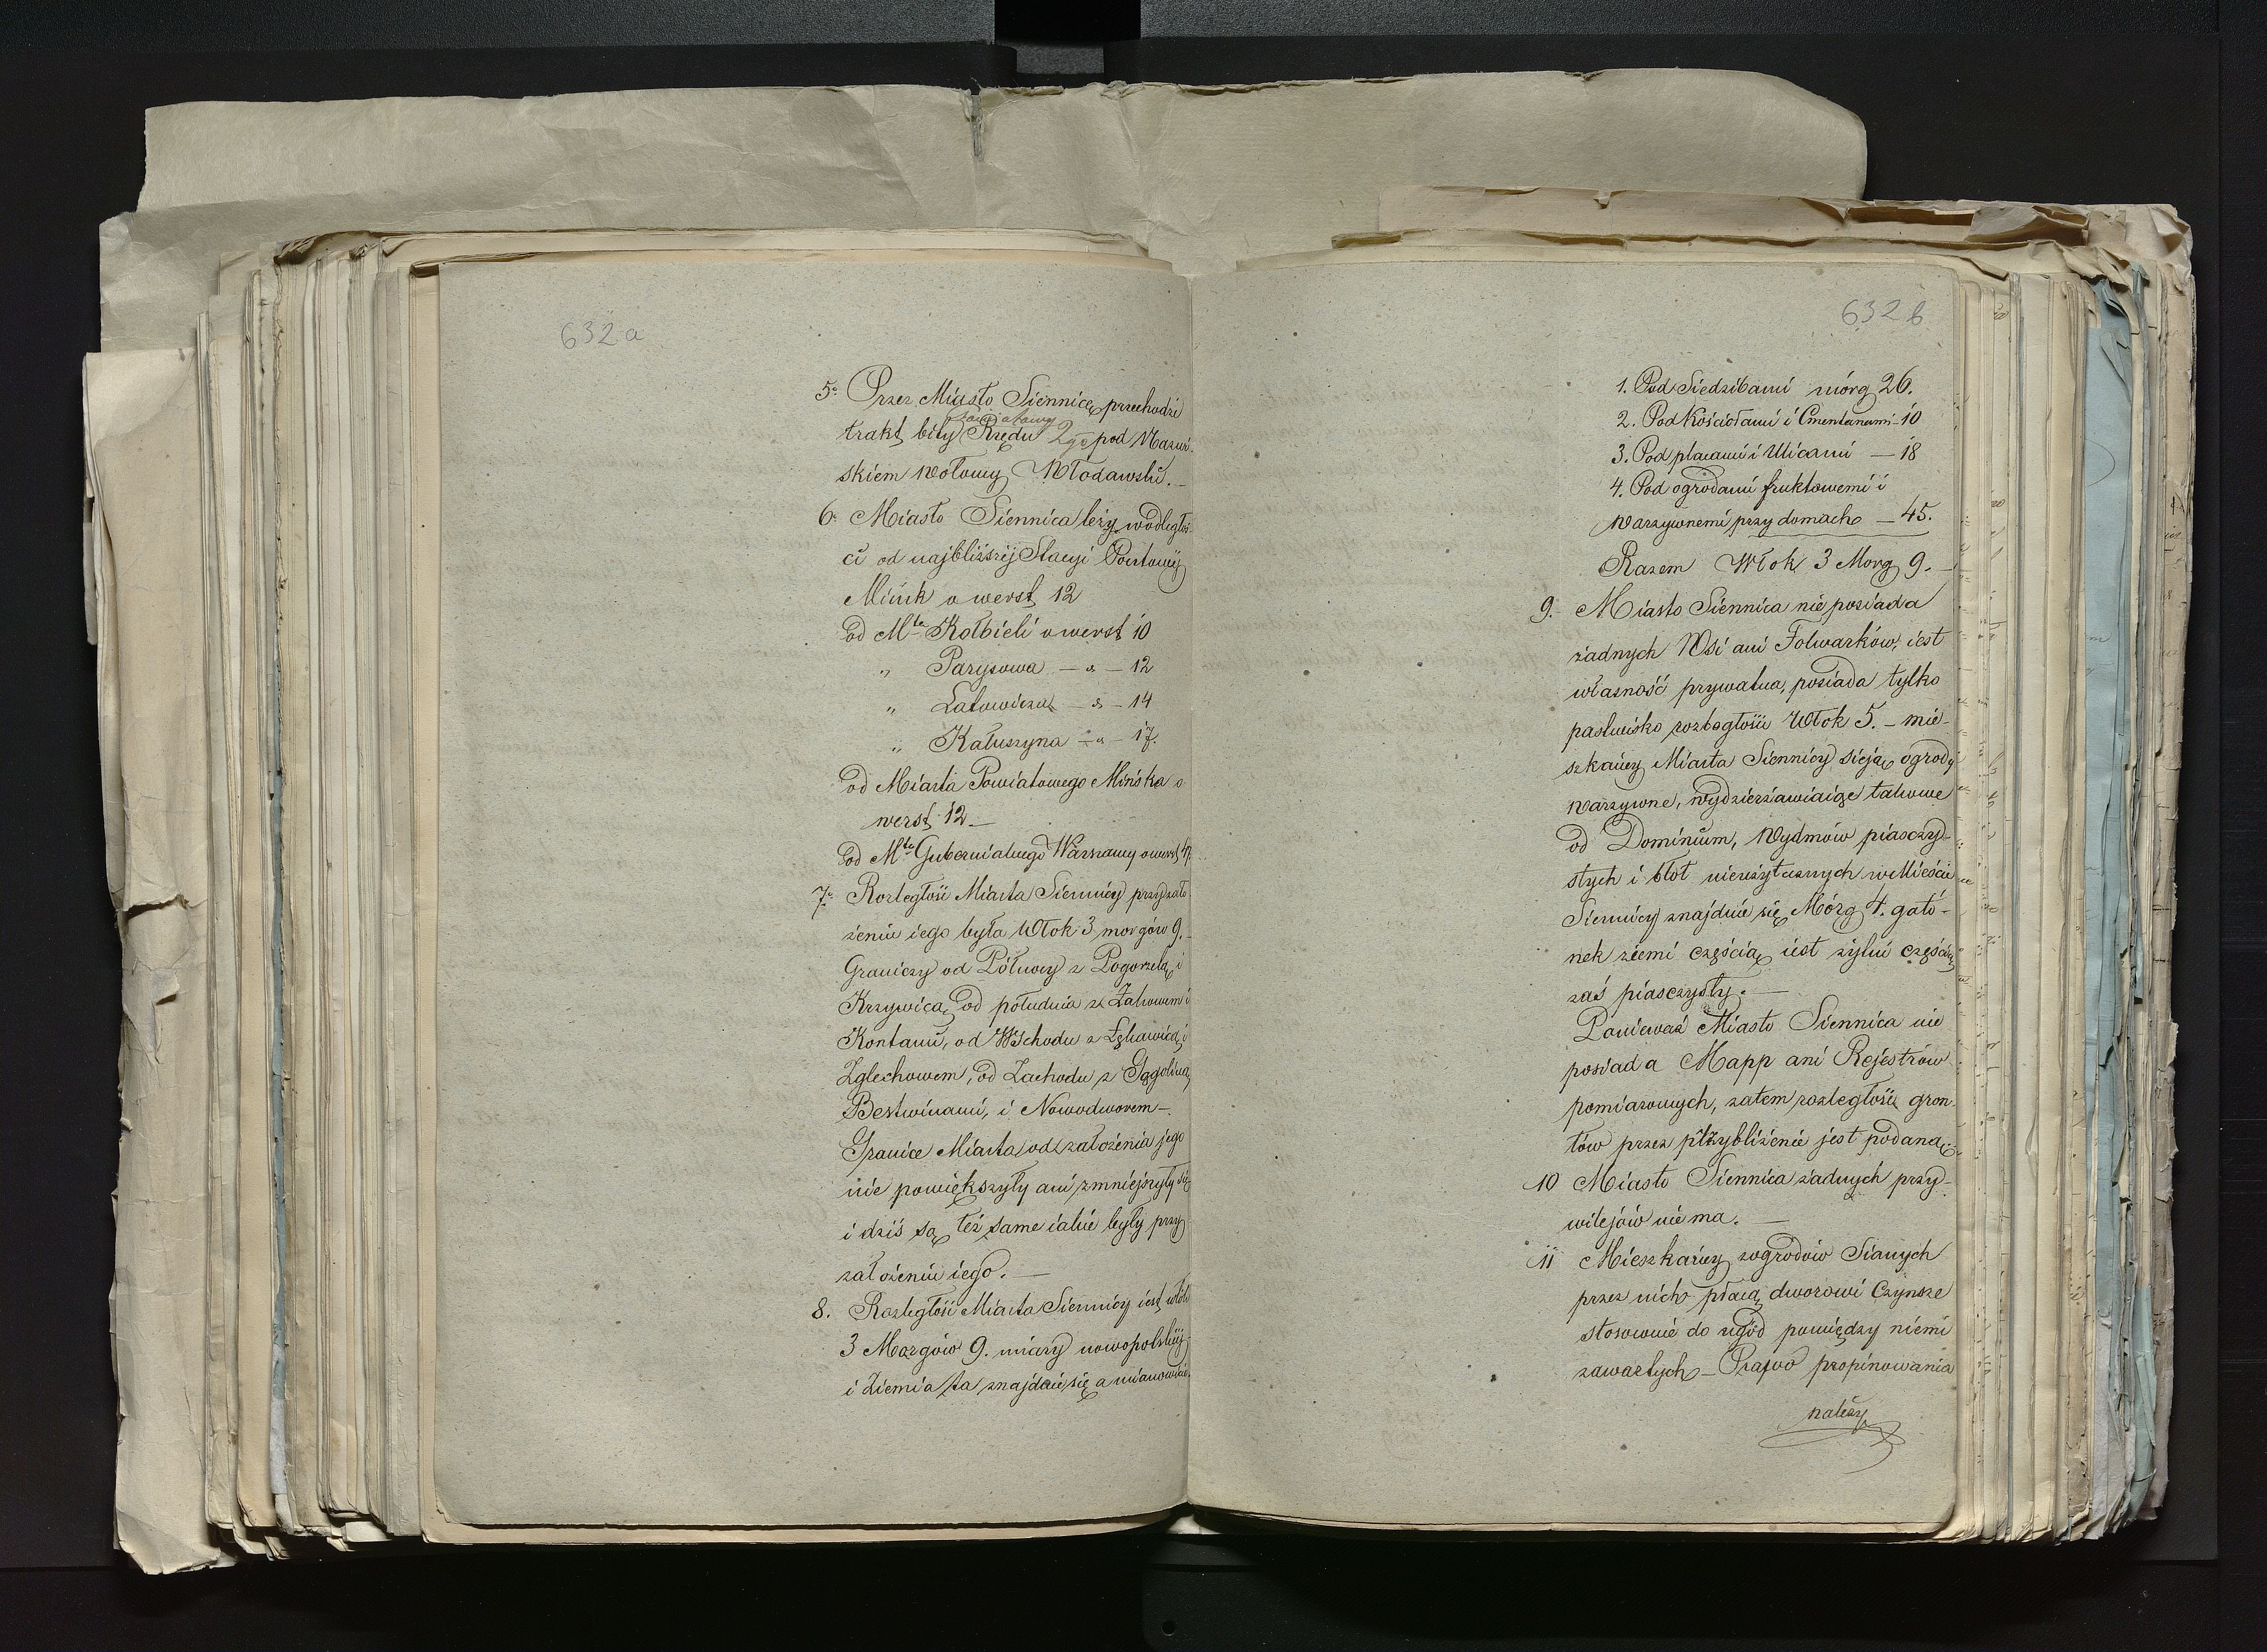 632 a
5. Przez Miasto Siennicę przechodzi
trakt bity Rzędu 2go pod Nazwi-
skiem wołowy Włodawski. —
6. Miasto Siennica leży w odległoś-
ci od najbliższej Stacyi Pocztowej
Mińsk o werst 12
od Mta Kołbieli o werst 10
" Parysowa — " — 12
" Latowicza — " — 14
" Kałuszyna — " — 17.
od Miasta Powiatowego Mińska o
werst 12 —
od Mta Gubernialnego Warszawy o werst
7. Rozległość Miasta Siennicy przy zało-
żeniu iego była Włok 3 morgów 9. —
Graniczy od Północy z Pogorzelą i
Krzywicą, od południa z Żakowem i
Kontami, od Wschodu z Łękawicą i
Zglechowem, od Zachodu z Gągoliną,
Bestwinami, i Nowodworem —.
Granice Miasta od założenia jego
nie powiększyły ani zmniejszyły się
i dziś są też same iakie były przy
założeniu iego. —
8. Rozległość Miasta Siennicy iest włók
3 Morgów 9. miary nowopolskiej
i Ziemia ta znajduie się a mianowicie.
632 b
1. Pod Siedzibami mórg 26.
2. Pod Kościołami i Cmentarzami — 10
3. Pod placami i Ulicami — 18
4. Pod ogrodami fruktowemi i
warzywnemi przy domach — 45.
Razem Włok 3 Morg 9. —
9. Miasto Siennica nie posiada
żadnych Wsi ani Folwarków, iest
własność prywatna, posiada tylko
pastwisko rozległości Włok 5. — mie-
szkańcy Miasta Siennicy sieją ogrody
warzywne, wydzierżawiaiąc takowe
od Dominium, Wydmów piasczy-
stych i błot nieużytecznych w Mieście
Siennicy znajduie się Mórg 4. gatu-
nek ziemi częścią iest żytni częścią
zaś piasczysty. —
Ponieważ Miasto Siennica nie
posiada Mapp ani Rejestrów
pomiarowych, zatem rozległość gron-
tów przez przybliżenie jest podaną.
10 Miasto Siennica żadnych przy-
wilejów nie ma. —
11 Mieszkańcy z ogrodów Sianych
przez nich płacą dworowi Czynsze
stosownie do ugód pomiędzy niemi
zawartych — Prawo propinowania
należy